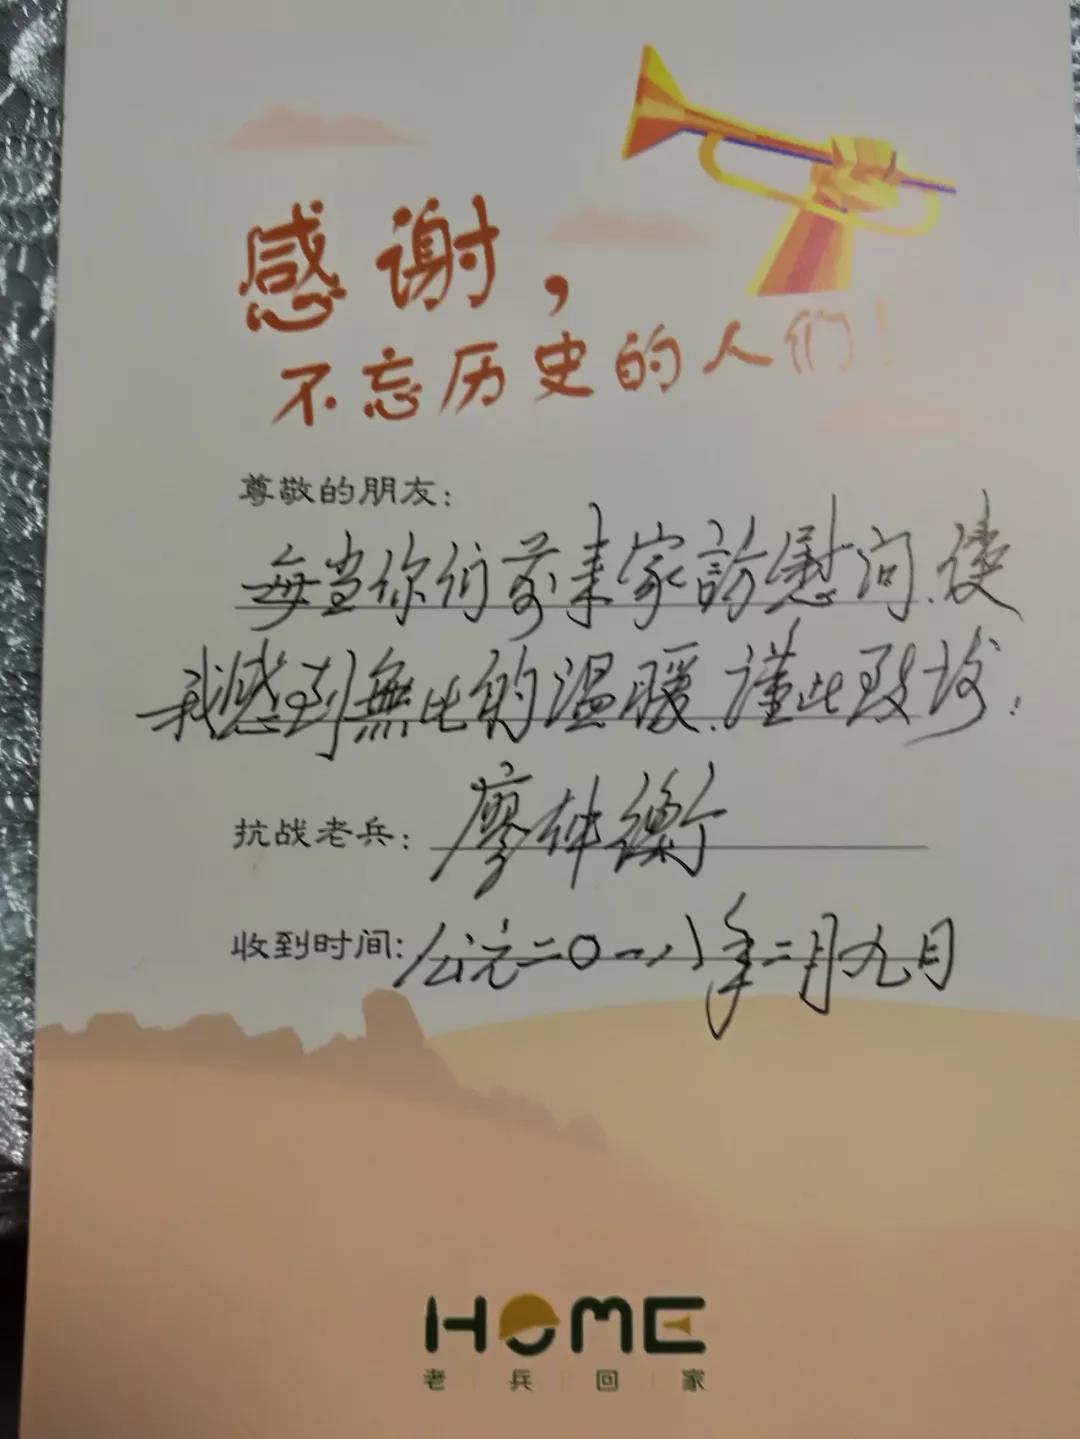 感谢，
不忘历史的人们！
尊敬的朋友：
每当你们前来家訪慰问、使
我感到無比的温暖、謹此致
抗战老兵：廖仲衡
收到时间：公元二〇一八年二月九日
HOME
老兵回家